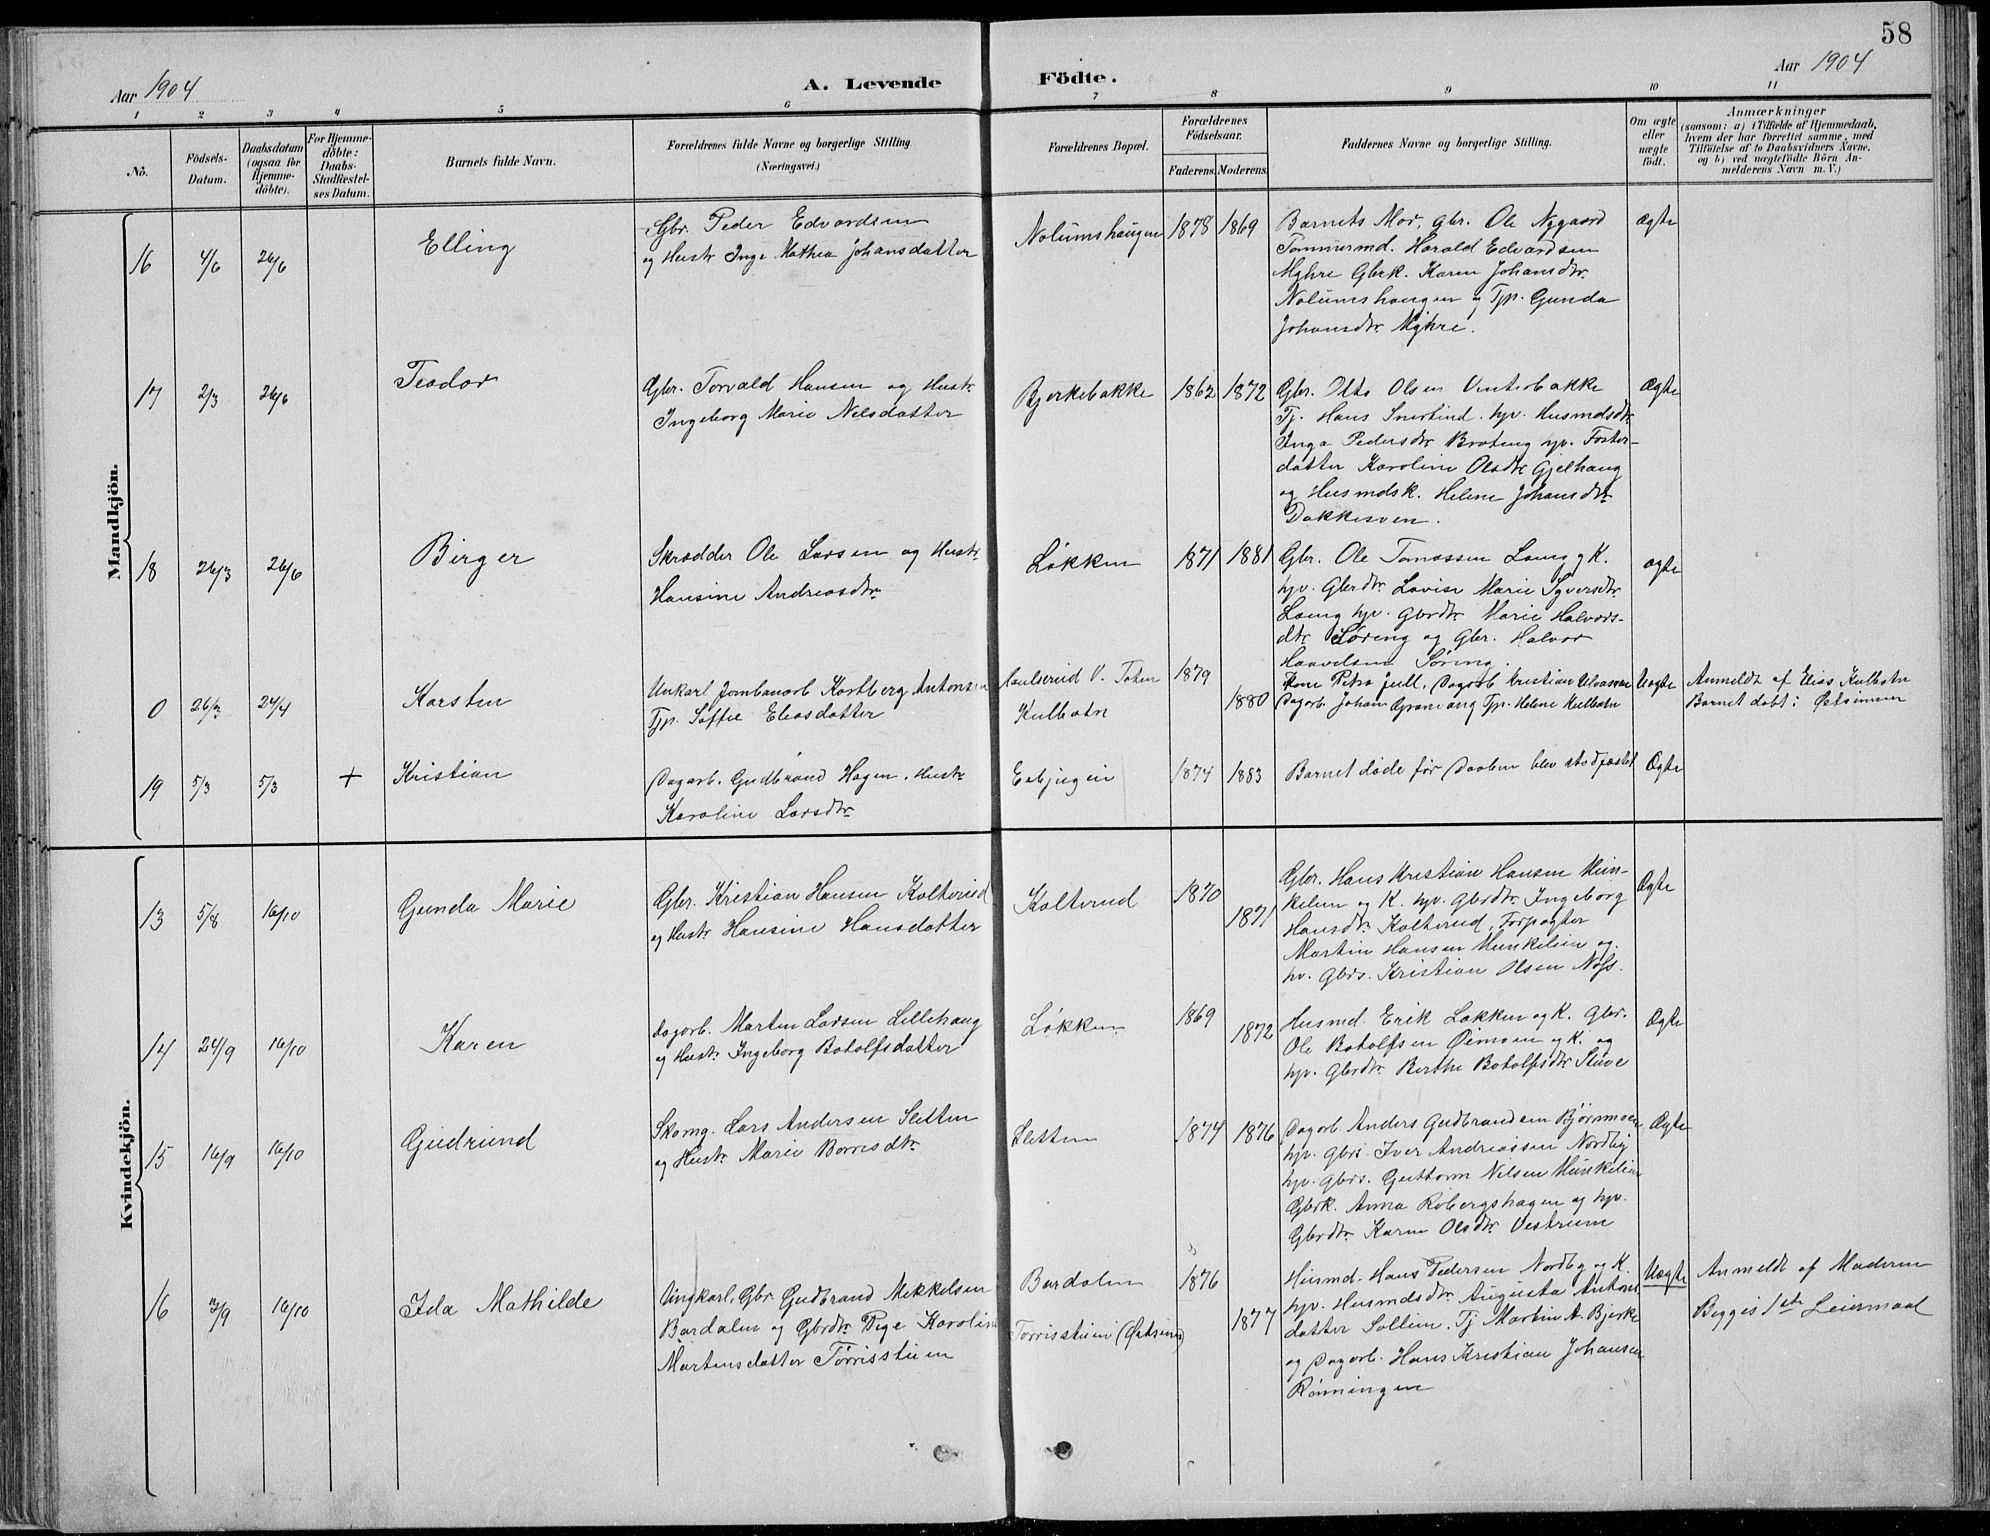 58
Aar 1904
A. Levende Födte.
Aar 1904
1 2 3 4 5 6 7 8 9 10 11
No.
Födsels-Datum.
Daabsdatum (ogsaa for Hjemme-döbte).
For Hjemme-döbte: Daabs-Stadfæstel-ses Datum.
Barnets fulde Navn.
Forældrenes fulde Navne og borgerlige Stilling.
(Næringsvei.)
Forældrenes Bopæl.
Forældrenes Födselsaar.
Faderens. Moderens.
Faddernes Navne og borgerlige Stilling.
Om ægte eller uægte födt.
Anmærkninger
(saasom: a) i Tilfælde af Hjemmedaab,
hvem der har forrettet samme, med
Tilföielse af to Daabsvidners Navne,
og b) ved uægtefödte Börn An-
melderens Navn m. V.)
Mandkjön.
16 4/6 26/6 Elling
Gbr. Peder Edvardsen
og Hustr Inge Mathea Johansdatter
Nolumshaugen 1878 1869
Barnets Mor, Gbr. Ole Nygaard
Tømmermd. Harald Edvardsen
Myhre Gbrk. Karen Johansdtr.
Nolumshaugen og Tjp. Gunda
Johansdtr. Myhre.
Ægte
17 2/3 26/6 Teodor
Gbr. Torvald Hansen og Hustr.
Ingeborg Marie Nilsdatter
Bjerkebakke 1862 1872
Gbr. Otto Olsen Vinterbakke
Tj. Hans Snertind. hp. Husmdsdtr.
Inga Pedersdtr. Brateng hp. Foster-
datter Karoline Olsdtr. Gjelhaug
og Husmdsk. Helene Johansdtr.
Dakkesven.
Ægte
18 26/3 26/6 Birger
Skrædder Ole Larsen og Hustr.
Hansine Andreasdtr.
Løkken 1871 1881
Gbr. Ole Tomassen Laeng og K.
hp. Gbrdtr. Lovise Marie Syversdtr.
Laeng hp. Gbrdtr. Marie Halvors-
dtr. Søreng og Gbr. Halvor
Haavelsen Søreng.
Ægte
0 26/3 24/4 Karsten
Unkarl Jernbanarb Kartberg Antonsen
Tjp. Soffie Eliasdatter
V. Toten
Kulbotn
1879 1880
Kone Petra Juell, Dagarb. Kristian
Dagarb Johan Granum og Tjp. Helene Kulbotn
Uægte
Anmeldt af Elias Kulbotn
Barnet døbt i Østsinnen
19 5/3 5/3 + Kristian
Dagarb. Gudbrand Hagen. Hustr.
Karoline Larsdtr.
1874 1883
Barnet døde før Daaben blev stadfæstet
Ægte
Kvindekjön.
13 5/8 16/10 Gunda Marie
Gbr. Kristian Hansen Kolterud
og Hustr. Hansine Hansdatter
Kolterud 1870 1871
Gbr. Hans Kristian Hansen Mun-
kelien og K. hp. Gbrdtr. Ingeborg
Hansdtr. Kolterud, Forpagter
Martin Hansen Munkelien og
hp. Gbrs. Kristian Olsen Nøss.
Ægte
14 24/9 16/10 Karen
Dagarb. Martin Larsen Lillehaug
og Hustr. Ingeborg Botolfsdatter
Løkken 1869 1872
Husmd. Erik Løkken og K. Gbr.
Ole Botolfsen Øimoen og K. og
hp. Gbrdtr. Berthe Botolfsdtr. Stuve
Ægte
15 16/9 16/10 Gudrund
Skomg. Lars Andersen Sletten
og Hustr. Marie Borresdtr.
Sletten 1874 1876
Dagarb Anders Gudbrandsen Bjørnmoen
hp. Gbrs. Iver Andreassen Nordby
hp. Gbrs. Guttorm Nilsen Munkelien
Gbrk. Anna Robergshagen og hp.
Gbrdtr. Karen Olsdtr. Vestrum
Ægte
16 12/9 16/10 Ida Mathilde
Ungkarl, Gbr. Gudbrand Mikkelsen
Bardalen og Gbrdtr. Pige Karoline
Martensdatter Tørrisstuen
Bardalen
Tørrisstuen (Østsinnen)
1876 1877
Husmd. Hans Pedersen Nordby og K.
hp. Husmdsdtr. Augusta Antons
datter Sollien. Tj Martin A. Bjerke
og Dagarb. Hans Kristian Johansen
Rønningen
Uægte
Anmeldt af Moderen
Begges 1ste Leiermaal